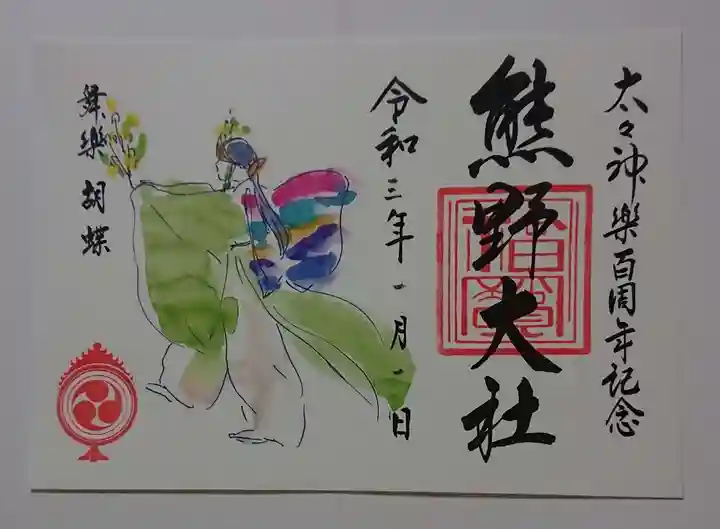 太々神樂百周年記念
熊野大社
令和三年一月一日
舞樂 胡蝶